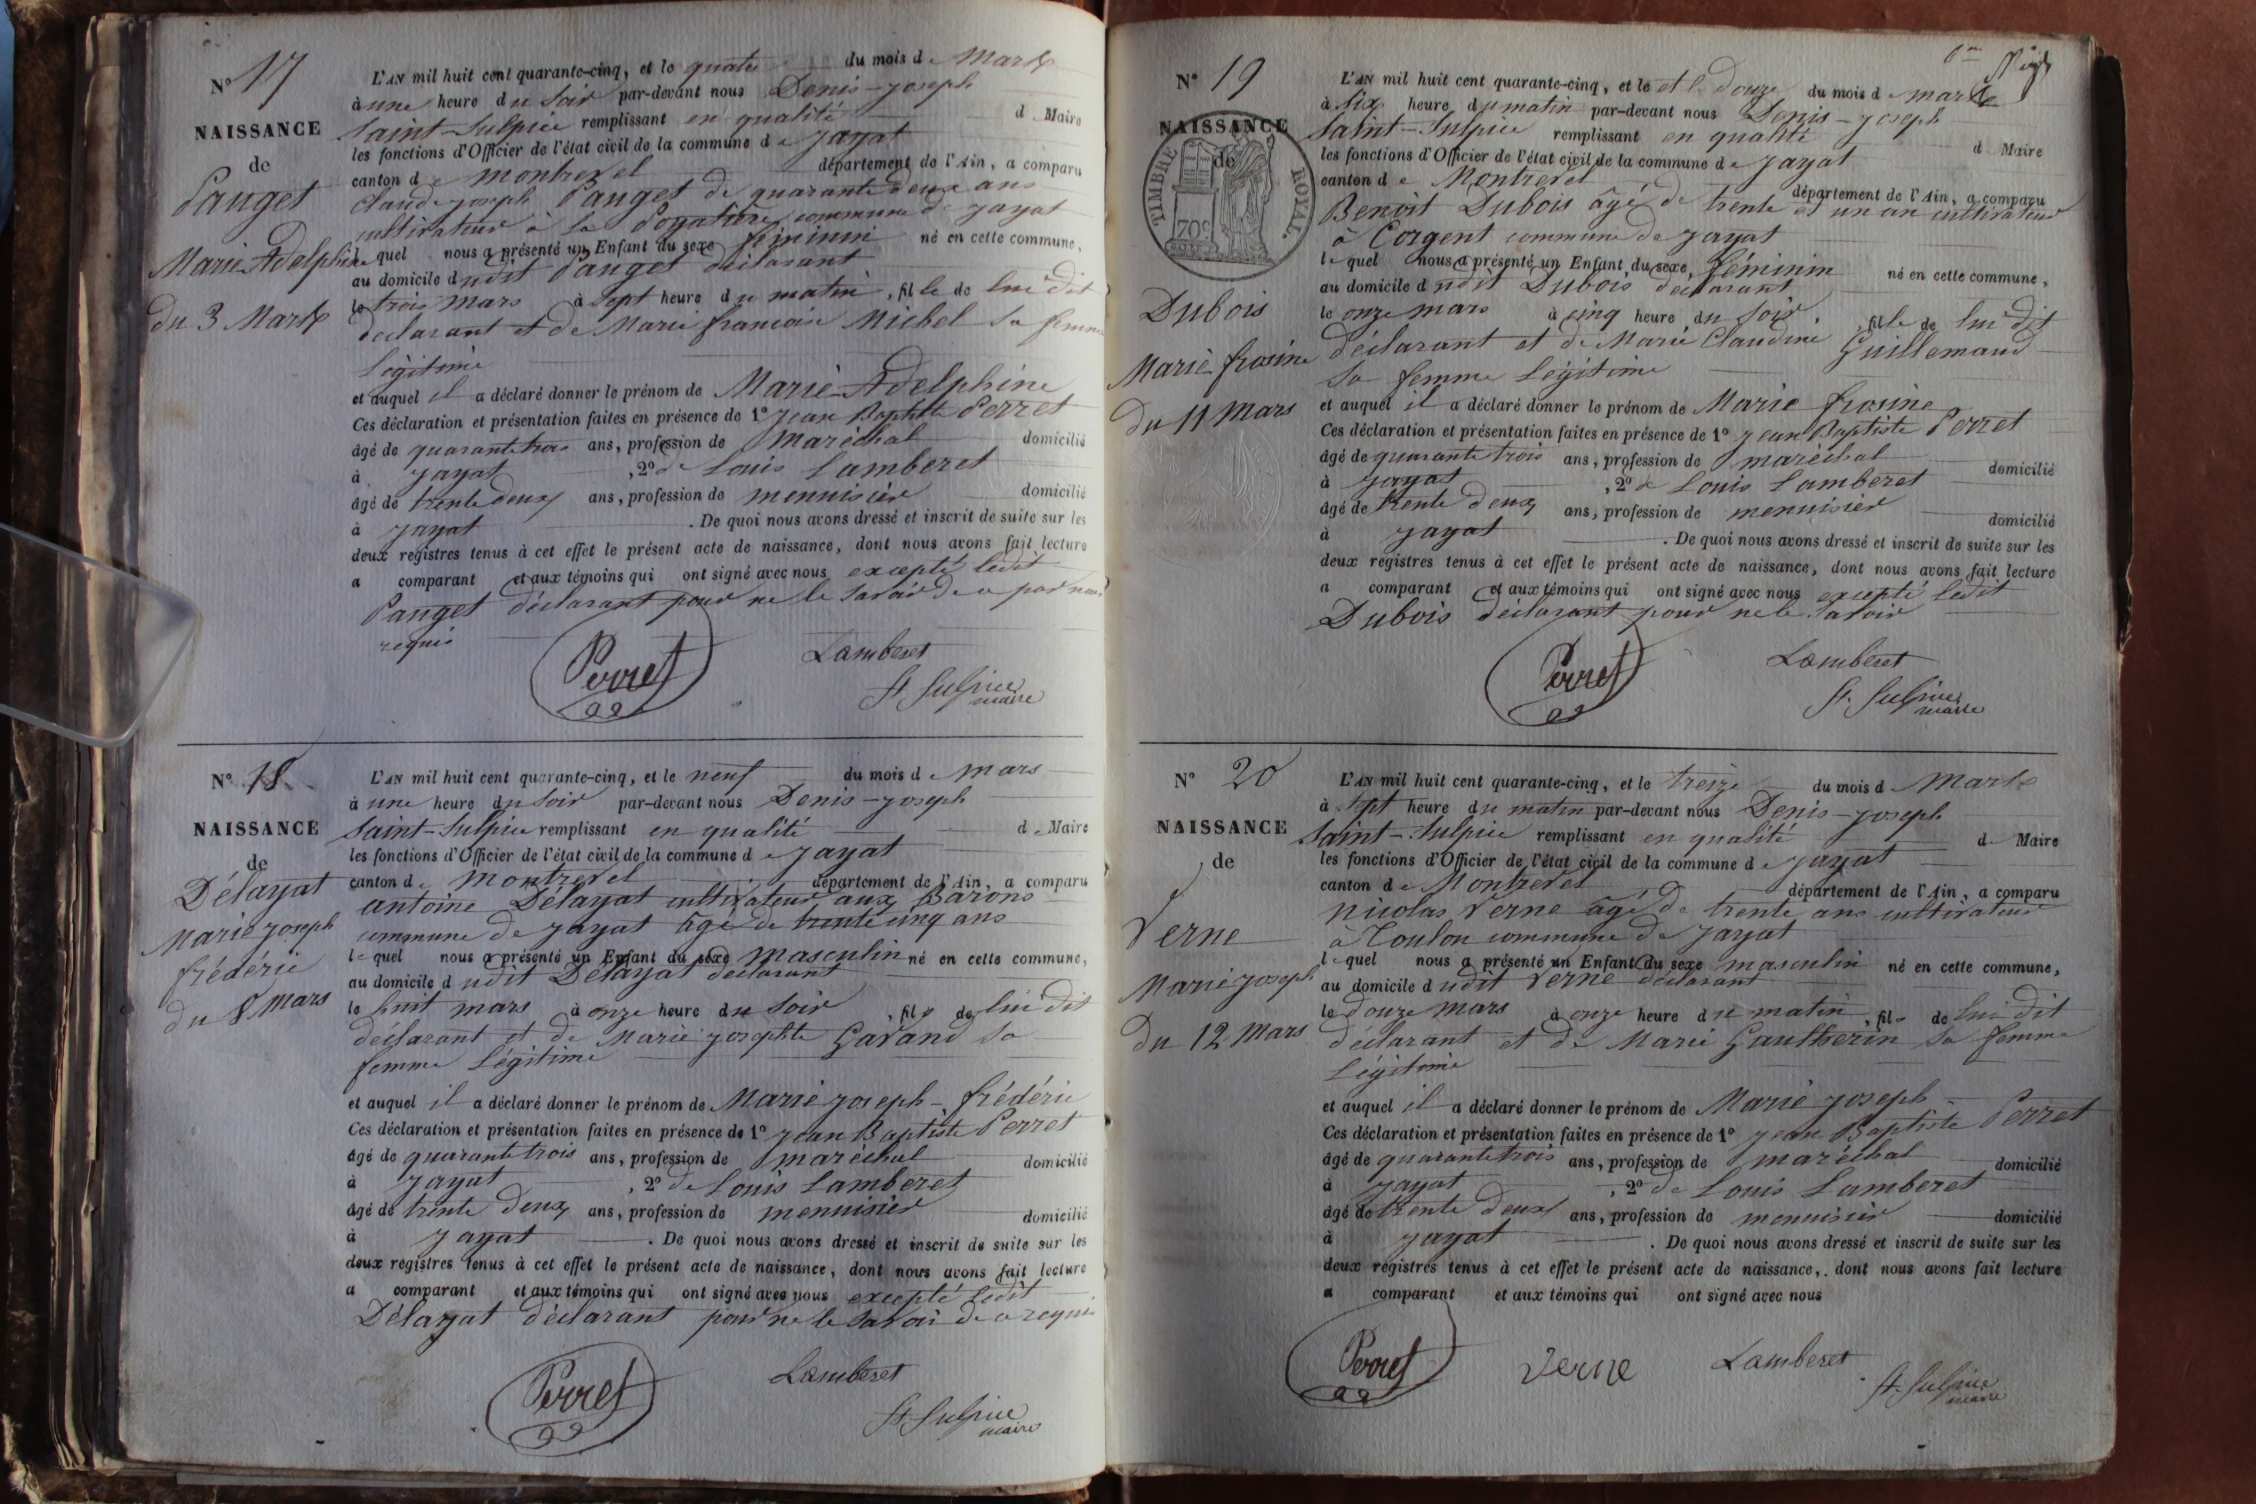 N° 17
NAISSANCE
de
Pauget
Marie Adelphine
du 3 Mars
L'AN mil huit cent quarante-cinq, et le quatre du mois de Mars
à une heure du soir par-devant nous Denis-joseph
Saint-Sulpice remplissant en qualité de Maire
les fonctions d'Officier de l'état civil de la commune de jayat
canton de montrevel département de l'Ain, a comparu
Claude joseph Pauget de quarante deux ans
cultivateur à la commune de jayat
lequel nous a présenté un Enfant du sexe féminin né en cette commune,
au domicile dudit Pauget déclarant
le trois mars à sept heure du matin, fille de lui dit
déclarant et de Marie françoise Michel sa femme
légitime
et auquel il a déclaré donner le prénom de Marie-Adelphine
Ces déclaration et présentation faites en présence de 1° jean Baptiste Perret
âgé de quarante trois ans, profession de maréchal domicilié
à jayat, 2° de Louis Lamberet
âgé de trente deux ans, profession de menuisier domicilié
à jayat. De quoi nous avons dressé et inscrit de suite sur les
deux registres tenus à cet effet le présent acte de naissance, dont nous avons fait lecture
a comparant et aux témoins qui ont signé avec nous excepté ledit
Pauget déclarant pour ne le savoir de ce par nous
requis
Perret
Lamberet
St Sulpice
maire
N° 18
NAISSANCE
de
Délayat
Marie joseph
frédéric
du 8 Mars
L'AN mil huit cent quarante-cinq, et le neuf du mois de mars
à une heure du soir par-devant nous Denis-joseph
Saint-Sulpice remplissant en qualité de Maire
les fonctions d'Officier de l'état civil de la commune de jayat
canton de montrevel département de l'Ain, a comparu
antoine Délayat cultivateur aux Barons
commune de jayat âgé de trente cinq ans
lequel nous a présenté un Enfant du sexe masculin né en cette commune,
au domicile dudit Délayat déclarant
le huit mars à onze heure du soir, fils de lui dit
déclarant et de Marie josephte Gavand sa
femme légitime
et auquel il a déclaré donner le prénom de Marie joseph-frédéric
Ces déclaration et présentation faites en présence de 1° jean Baptiste Perret
âgé de quarante trois ans, profession de maréchal domicilié
à jayat, 2° de Louis Lamberet
âgé de trente deux ans, profession de menuisier domicilié
à jayat. De quoi nous avons dressé et inscrit de suite sur les
deux registres tenus à cet effet le présent acte de naissance, dont nous avons fait lecture
a comparant et aux témoins qui ont signé avec nous excepté ledit
Délayat déclarant pour ne le savoir de ce requis
Perret
Lamberet
St Sulpice
maire
N° 19
NAISSANCE
de
TIMBRE ROYAL.
70c
Dubois
Marie frosine
du 11 Mars
L'AN mil huit cent quarante-cinq, et le et le douze du mois de mars
à six heure du matin par-devant nous Denis-joseph
Saint-Sulpice remplissant en qualité de Maire
les fonctions d'Officier de l'état civil de la commune de jayat
canton de Montrevel département de l'Ain, a comparu
Benoit Dubois âgé de trente et un an cultivateur
à Corgent commune de jayat
lequel nous a présenté un Enfant du sexe féminin né en cette commune,
au domicile dudit Dubois déclarant
le onze mars à cinq heure du soir, fille de lui dit
déclarant et de Marie Claudine Guillemaud
sa femme légitime
et auquel il a déclaré donner le prénom de Marie frosine
Ces déclaration et présentation faites en présence de 1° jean Baptiste Perret
âgé de quarante trois ans, profession de maréchal domicilié
à jayat, 2° de Louis Lamberet
âgé de trente deux ans, profession de menuisier domicilié
à jayat. De quoi nous avons dressé et inscrit de suite sur les
deux registres tenus à cet effet le présent acte de naissance, dont nous avons fait lecture
a comparant et aux témoins qui ont signé avec nous excepté ledit
Dubois déclarant pour ne le savoir
Perret
Lamberet
St. Sulpice
maire
N° 20
NAISSANCE
de
Verne
Marie joseph
du 12 Mars
L'AN mil huit cent quarante-cinq, et le treize du mois de Mars
à sept heure du matin par-devant nous Denis-joseph
Saint-Sulpice remplissant en qualité de Maire
les fonctions d'Officier de l'état civil de la commune de jayat
canton de Montrevel département de l'Ain, a comparu
Nicolas Verne âgé de trente ans cultivateur
à Toulon commune de jayat
lequel nous a présenté un Enfant du sexe masculin né en cette commune,
au domicile dudit Verne déclarant
le douze mars à onze heure du matin, fils de lui dit
déclarant et de Marie Gautherin sa femme
légitime
et auquel il a déclaré donner le prénom de Marie joseph
Ces déclaration et présentation faites en présence de 1° jean Baptiste Perret
âgé de quarante trois ans, profession de maréchal domicilié
à jayat, 2° de Louis Lamberet
âgé de trente deux ans, profession de menuisier domicilié
à jayat. De quoi nous avons dressé et inscrit de suite sur les
deux registres tenus à cet effet le présent acte de naissance, dont nous avons fait lecture
a comparant et aux témoins qui ont signé avec nous
Perret
Verne
Lamberet
St. Sulpice
maire